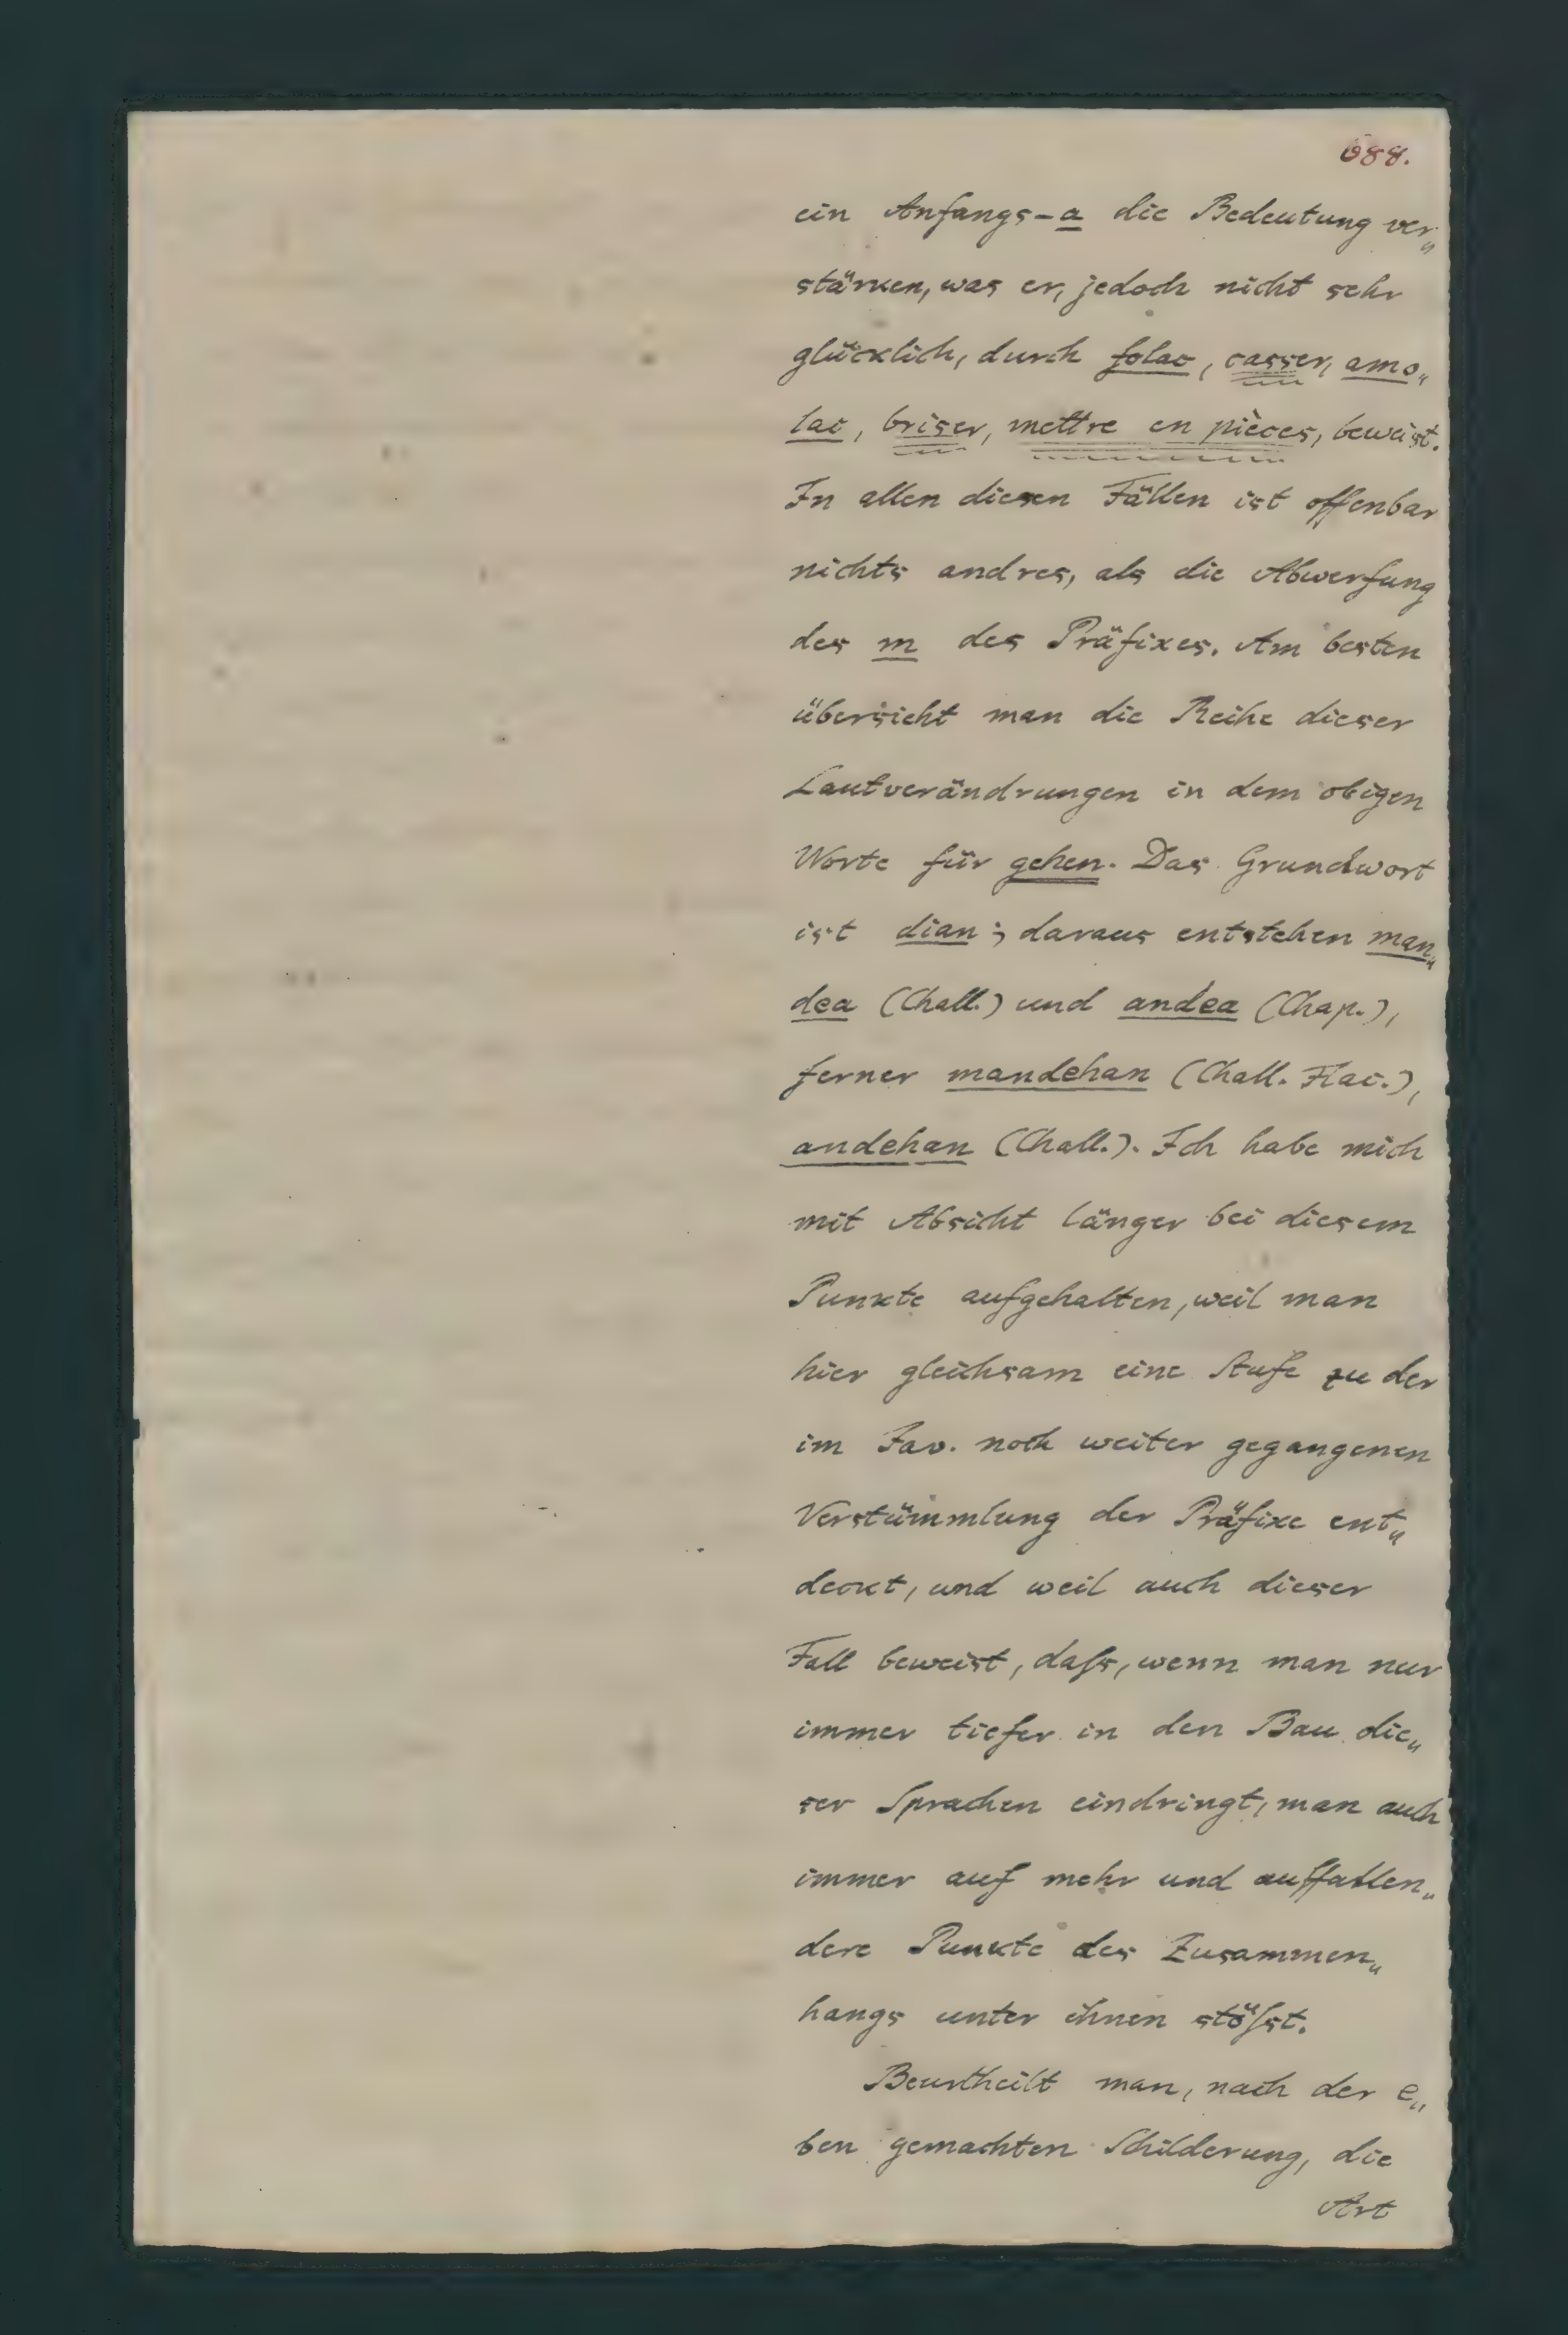 688.
ein Anfangs-a die Bedeutung ver„
stärken, was er, jedoch nicht sehr
glücklich, durch folac, casser, amo„
lac, briser, mettre en pièces, beweist.
In allen diesen Fällen ist offenbar
nichts andres, als die Abwerfung
des m des Präfixes. Am besten
übersieht man die Reihe dieser
Lautverändrungen in dem obigen
Worte für gehen. Das Grundwort
ist dian; daraus entstehen man„
dea (Chall.) und andea (Chap.),
ferner mandehan (Chall. Flac.),
andehan (Chall.). Ich habe mich
mit Absicht länger bei diesem
Punkte aufgehalten, weil man
hier gleichsam eine Stufe zu der
im Jav. noch weiter gegangenen
Verstümmlung der Präfixe ent„
deckt, und weil auch dieser
Fall beweist, daſs, wenn man nur
immer tiefer in den Bau die„
ser Sprachen eindringt, man auch
immer auf mehr und auffallen„
dere Punkte des Zusammen„
hangs unter ihnen stöſst.
Beurtheilt man, nach der e„
ben gemachten Schilderung, die
Art